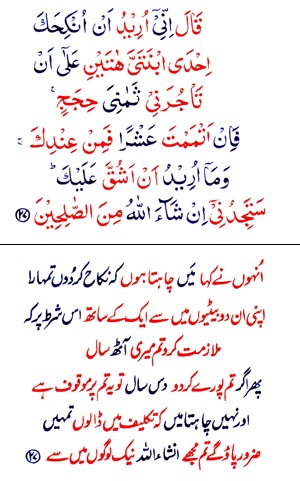 قَالَ اِنِّيْٓ اُرِيْدُ اَنْ اُنْكِحَكَ
اِحْدَى ابْنَتَيَّ هٰتَيْنِ عَلٰٓى اَنْ
تَاْجُرَنِيْ ثَمٰنِيَ حِجَجٍ ۚ
فَاِنْ اَتْمَمْتَ عَشْرًا فَمِنْ عِنْدِكَ ۚ
وَمَآ اُرِيْدُ اَنْ اَشُقَّ عَلَيْكَ ؕ
سَتَجِدُنِيْٓ اِنْ شَآءَ اللّٰهُ مِنَ الصّٰلِحِيْنَ ۲۷
اُنہوں نے کہا مَیں چاہتا ہوں کہ نکاح کر دُوں تمہارا
اپنی ان دو بیٹیوں میں سے ایک کے ساتھ اس شرط پر کہ
ملازمت کرو تم میری آٹھ سال
پھر اگر تم پورے کر دو دس سال تو یہ تم پر موقوف ہے
اور نہیں چاہتا میں کہ تکلیف میں ڈالوں تمہیں
ضرور پاؤ گے تم مجھے انشاء اللہ نیک لوگوں میں سے ۲۷